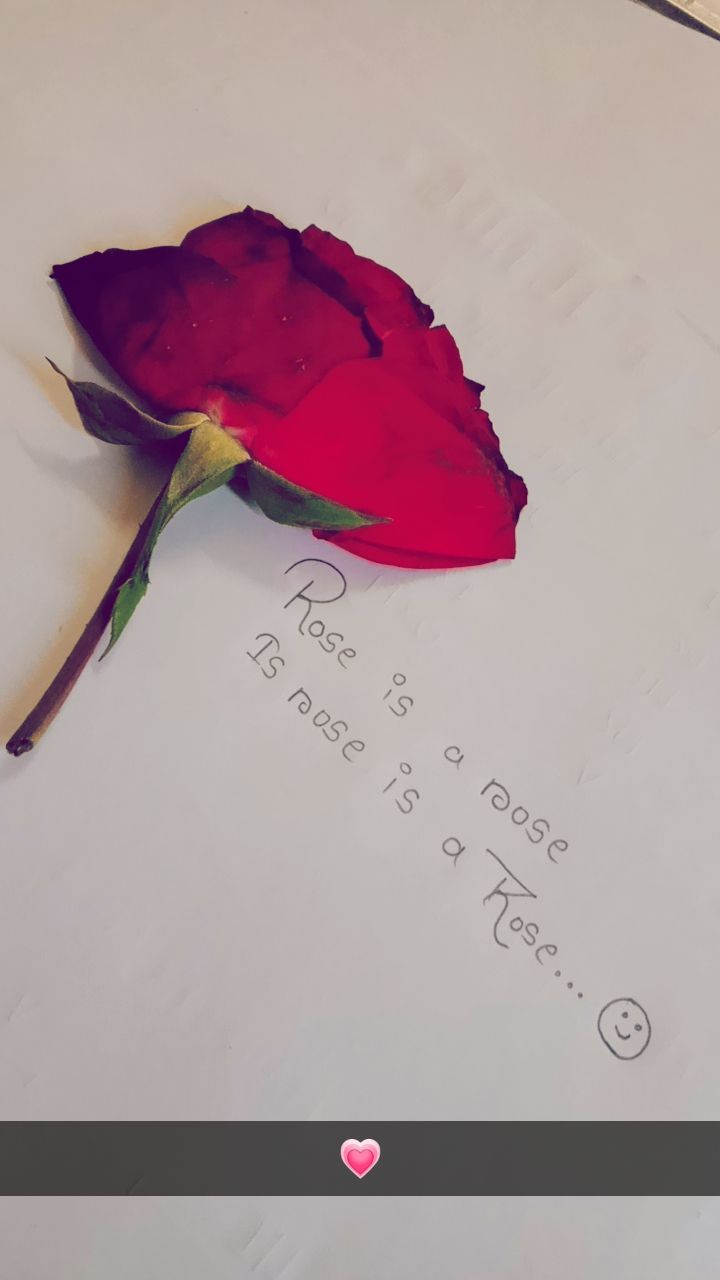 Rose is a rose
Is rose is a Rose...